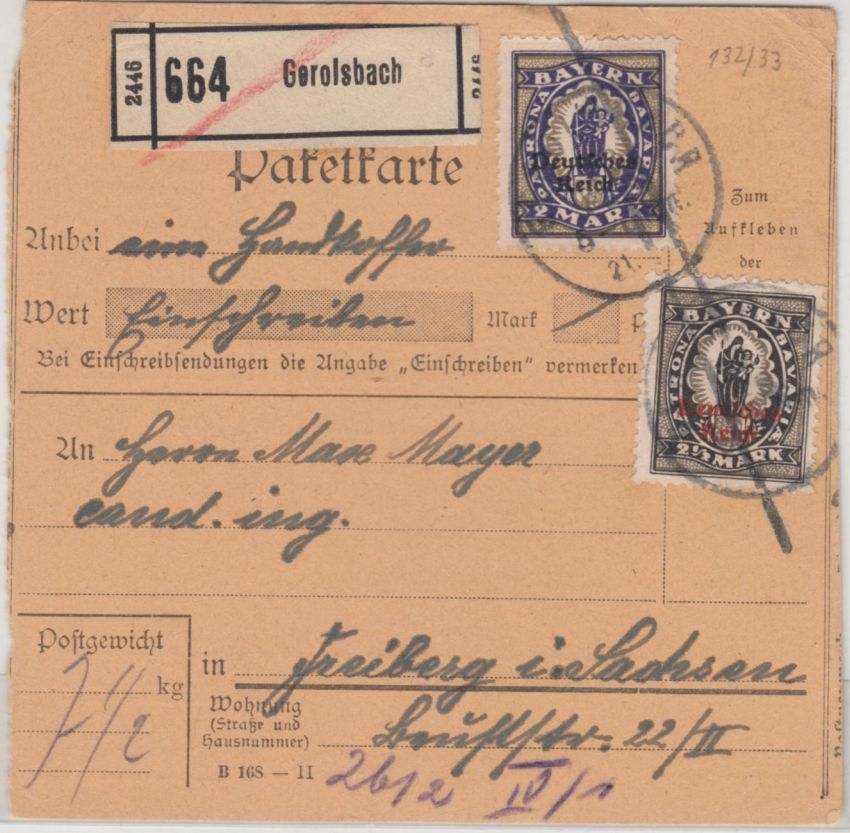 2446 664 Gerolsbach 2446
132/33
BAYERN
PATRONA BAVARIÆ
Deutsches
Reich
2 MARK
21.
Paketkarte
Zum
Aufkleben
der
Anbei ein Handkoffer
Wert Einschreiben Mark
Bei Einschreibsendungen die Angabe „Einschreiben" vermerken
BAYERN
PATRONA BAVARIÆ
Deutsches
Reich
2½ MARK
An Herrn Max Mayer
cand. ing.
Postgewicht
7 1/2 kg
in Freiberg i. Sachsen
Wohnung
(Straße und
Hausnummer)
22/II
B 168 — II
IV/1